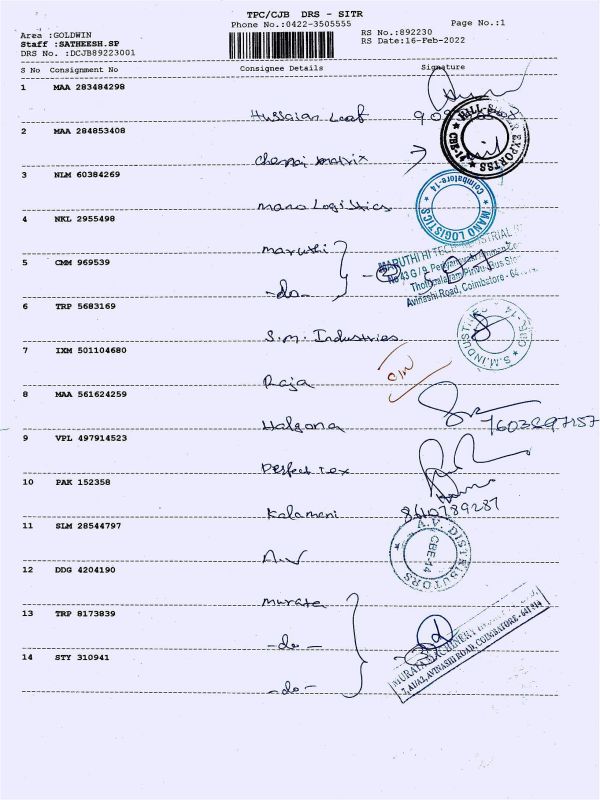 TPC/CJB DRS - SITR
Phone No.:0422-3505555
Page No.:1
Area :GOLDWIN
RS No.:892230
Staff :SATHEESH.SP
RS Date:16-Feb-2022
DRS No. :DCJB89223001
S No Consignment No Consignee Details Signature
1 MAA 283484298
Hussaian Leaf
2 MAA 284853408
Chennai matrix
CBE-14
3 NLM 60384269
Mano Logistics
MANO LOGISTICS
Coimbatore-14
4 NKL 2955498
maruthi
5 CMM 969539
-do-
MARUTHI HI TECH INDUSTRIAL
Avinashi Road, Coimbatore - 64
6 TRP 5683169
S.M. Industries
S.M.INDUSTRIES
CBE-14
7 IXM 501104680
Raja
O/W
8 MAA 561624259
Halgona
7603297157
9 VPL 497914523
Perfect Tex
10 PAK 152358
Kalamani
8610789287
11 SLM 28544797
A.V
A.V. DISTRIBUTORS
CBE-14
12 DDG 4204190
murata
13 TRP 8173839
-do-
14 STY 310941
-do-
MURATA MACHINERY
AVINASHI ROAD, COIMBATORE - 641 014